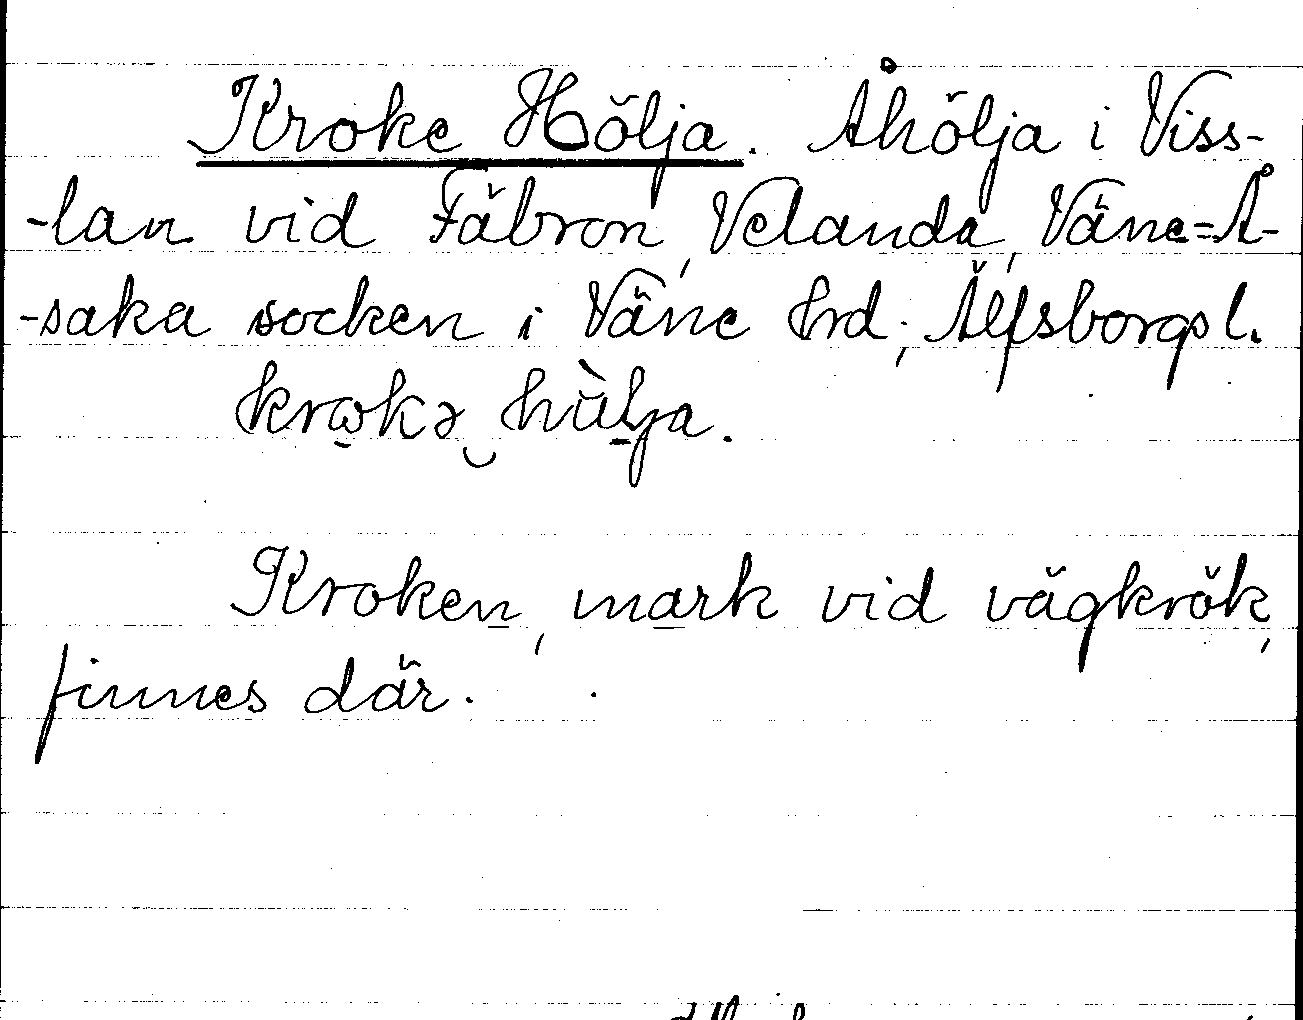 Kroke Hölja. Åhölja i Viss-
-lan vid Fäbron, Velanda, Väne=Å-
-saka socken i Väne hrd, Älfsborgs l.
krokə hùlja.
Kroken, mark vid vägkrök,
finnes där.